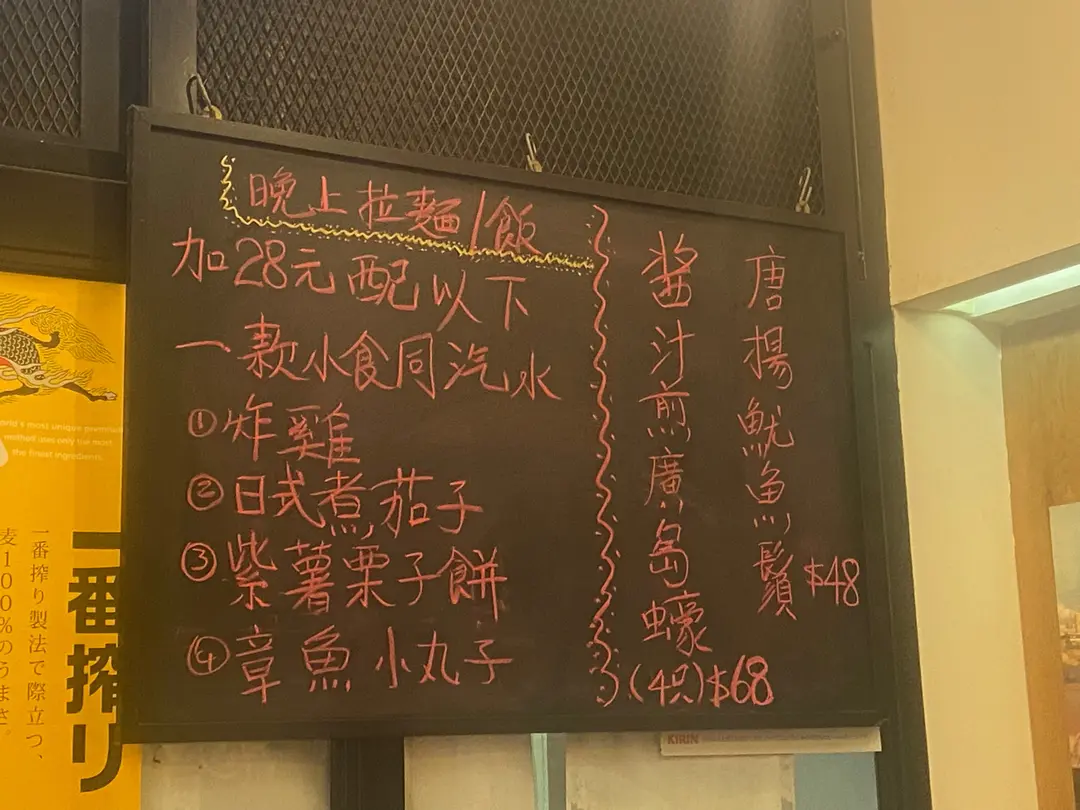 晚上拉麵/飯
加28元配以下
一款小食同汽水
①炸雞
②日式煮茄子
③紫薯栗子餅
④章魚小丸子
唐揚魷魚鬚 $48
醬汁煎廣島蠔
(4只)$68
world's most unique premium
method uses only the most
the finest ingredients.
一番搾り
一番搾り製法で際立つ、
麦100%のうまさ。
KIRIN